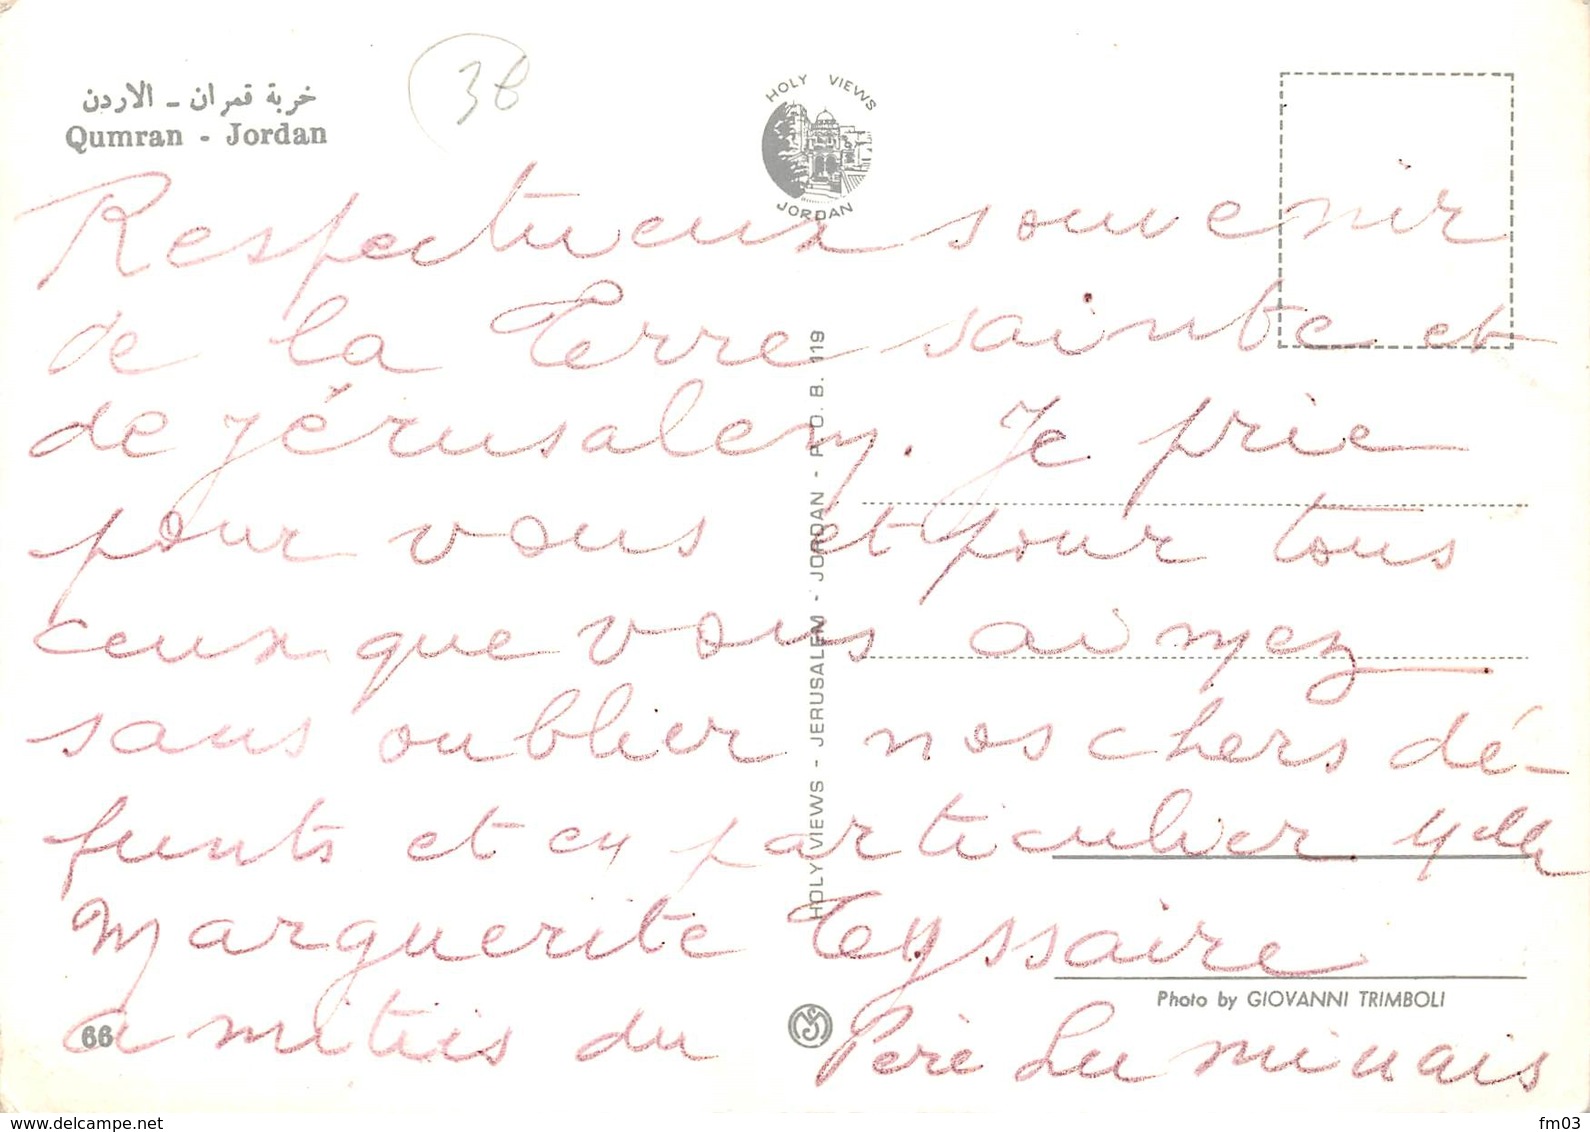 خربة قمران - الاردن
Qumran - Jordan
38
HOLY VIEWS
JORDAN
Respectueux souvenir
de la Terre sainte et
de Jérusalem. Je prie
pour vous et pour tous
ceux que vous aimez
sans oublier nos chers dé-
funts et en particulier Melle
Marguerite Teyssaire
amitiés du Père Luminais
HOLY VIEWS - JERUSALEM - JORDAN - P.O.B. 119
Photo by GIOVANNI TRIMBOLI
66
delcampe.net
fm03